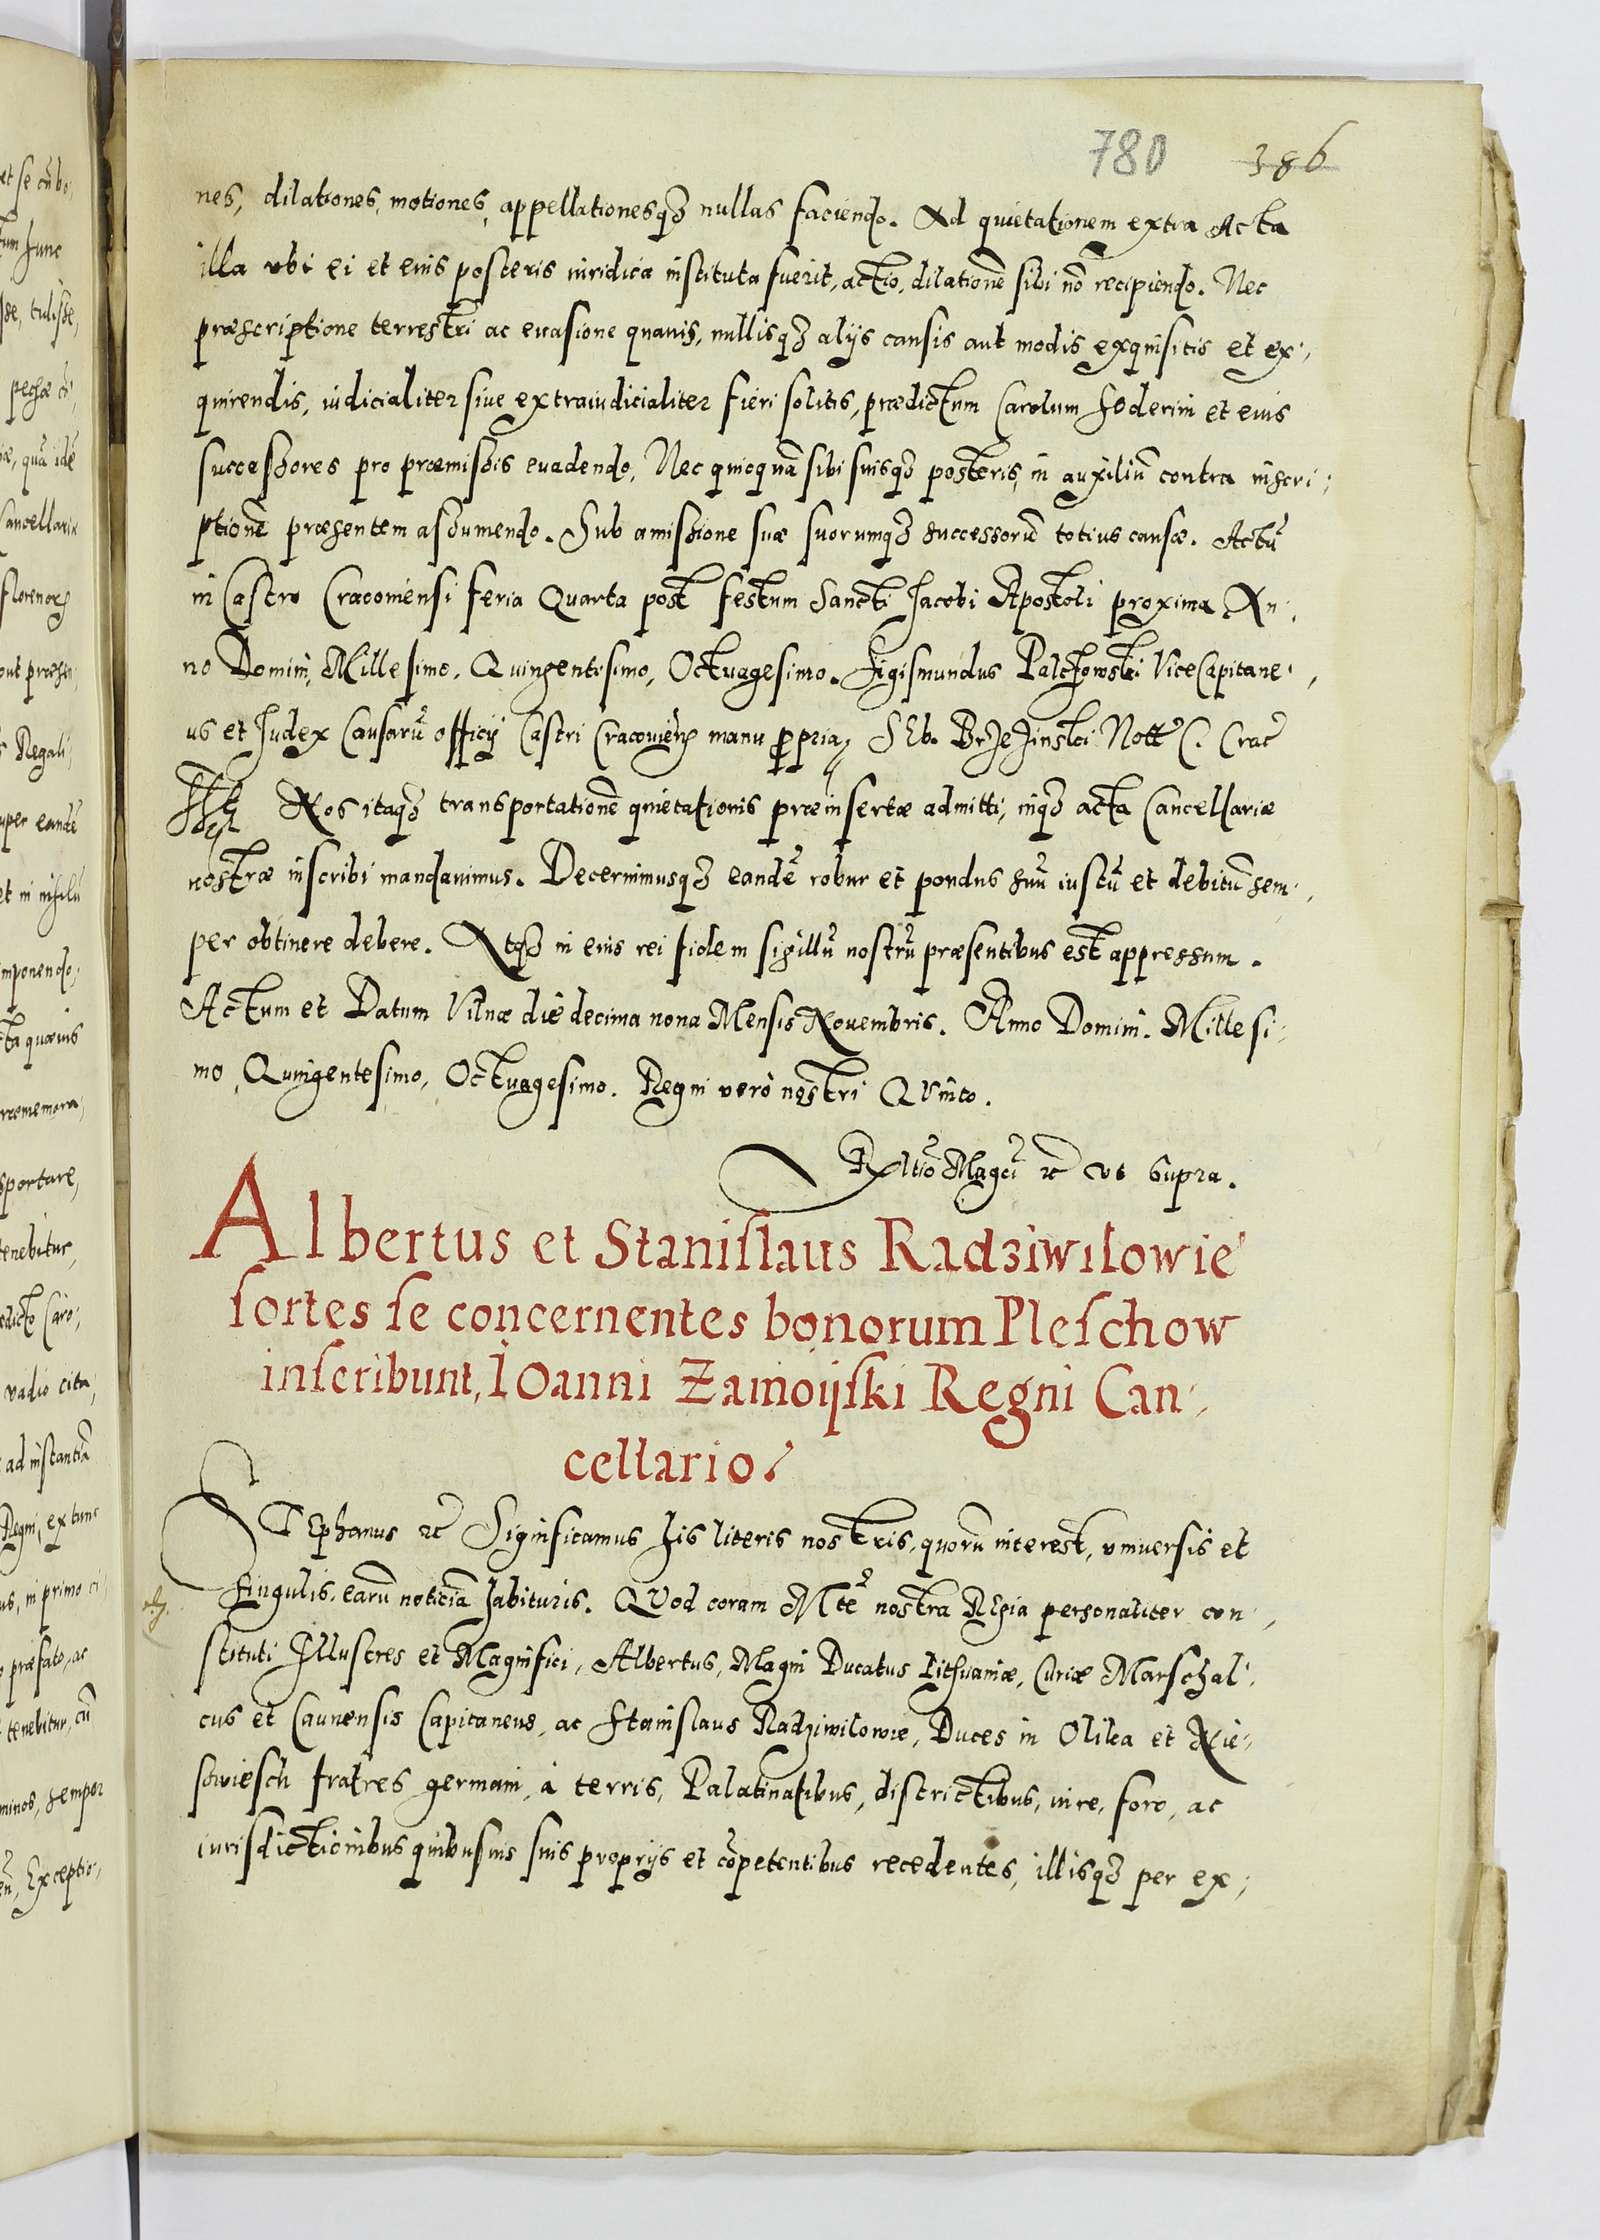 780 386
nes, dilationes, motiones, appellationesqꝫ nullas faciendo. Ad quietationem extra Acta
illa vbi ei et eius posteris iuridica instituta fuerit, actio, dilationē sibi nō recipiendo. Nec
præscriptione terrestri ac euasione quauis, nullisqꝫ alijs causis aut modis exquisitis et ex,
quirendis, iudicialiter siue extraiudicialiter fieri solitis, prædictum Carolum Foderini et eius
successores pro præmissis euadendo, Nec quicquā sibi suisqꝫ posteris, in auxiliū contra inscri,
ptionē præsentem assumendo. Sub amissione suæ suorumqꝫ successorū totius causæ. Actū
in Castro Cracouiensi feria Quarta post festum Sancti Jacobi Apostoli proxima An,
no Domini, Millesimo, Quingentisimo, Octuagesimo. Sigismundus Palchowski ViceCapitane,
us et Judex Causarū officij Castri Cracouieñ manu ꝓpria, Seb. Brzezinski Nott C. Crac
Nos itaqꝫ transportationē quietationis præinsertæ admitti, inqꝫ acta Cancellariæ
nostræ inscribi mandauimus. Decernimusqꝫ eandē robur et pondus suū iustū et debitū sem,
per obtinere debere. Atqꝫ in eius rei fidem sigillū nostrū præsentibus est appressum.
Actum et Datum Vilnæ die decima nona Mensis Nouembris. Anno Domini. Millesi,
mo, Quingentesimo, Octuagesimo. Regni verò nostri QVinto.
Rltio Magci ꝛc vt supra.
Albertus et Stanislaus Radziwilowie
sortes se concernentes bonorum Pleschow
inscribunt, Ioanni Zamoijski Regni Can,
cellario.
STEphanus ꝛc Significamus his literis nostris, quorū interest, vniuersis et
singulis, earū noticiā habituris. QVod coram Mtē nostra Regia personaliter con,
stituti Illustres et Magnifici, Albertus, Magni Ducatus Lithuaniæ, Curiæ Marschal,
cus et Caunensis Capitaneus, ac Stanislaus Radziwilowie, Duces in Olika et Nie,
swiesch fratres germani, à terris, Palatinatibus, districtibus, iure, foro, ac
iurisdictionibus quibusuis suis proprijs et cōpetentibus recedentes, illisqꝫ per ex,